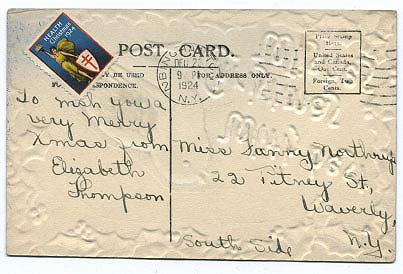 HEALTH
Christmas
1924
POST CARD.
DEC 22
9 P
1924
N.Y.
Y BE USED
FOR ADDRESS ONLY.
RESPONDENCE.
Place Stamp
Here.
United States
and Canada,
One Cent.
Foreign, Two
Cents.
To wish you a
very Merry
Xmas from
Elizabeth
Thompson
Miss Fanny Northrup
22 Pitney St,
Waverly,
N.Y.
South Side